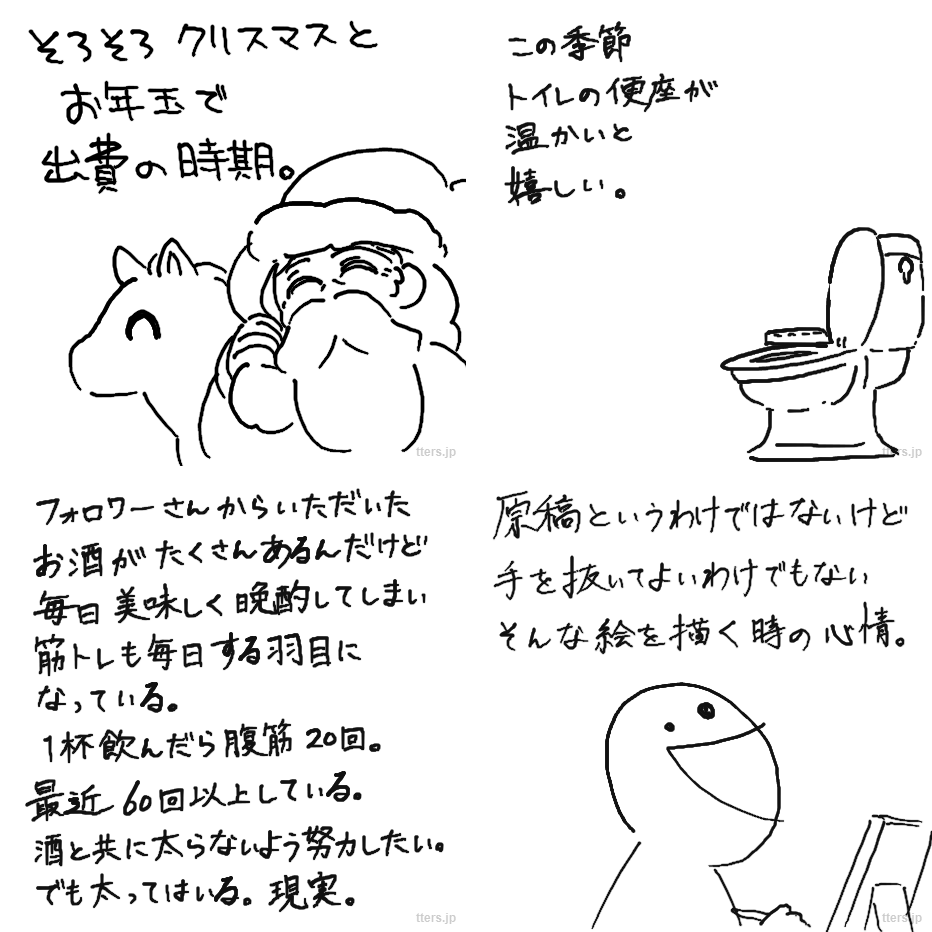 そろそろクリスマスと
お年玉で
出費の時期。
tters.jp
この季節
トイレの便座が
温かいと
嬉しい。
tters.jp
フォロワーさんからいただいた
お酒がたくさんあるんだけど
毎日美味しく晩酌してしまい
筋トレも毎日する羽目に
なっている。
1杯飲んだら腹筋20回。
最近60回以上している。
酒と共に太らないよう努力したい。
でも太ってはいる。現実。
tters.jp
原稿というわけではないけど
手を抜いてよいわけでもない
そんな絵を描く時の心情。
tters.jp